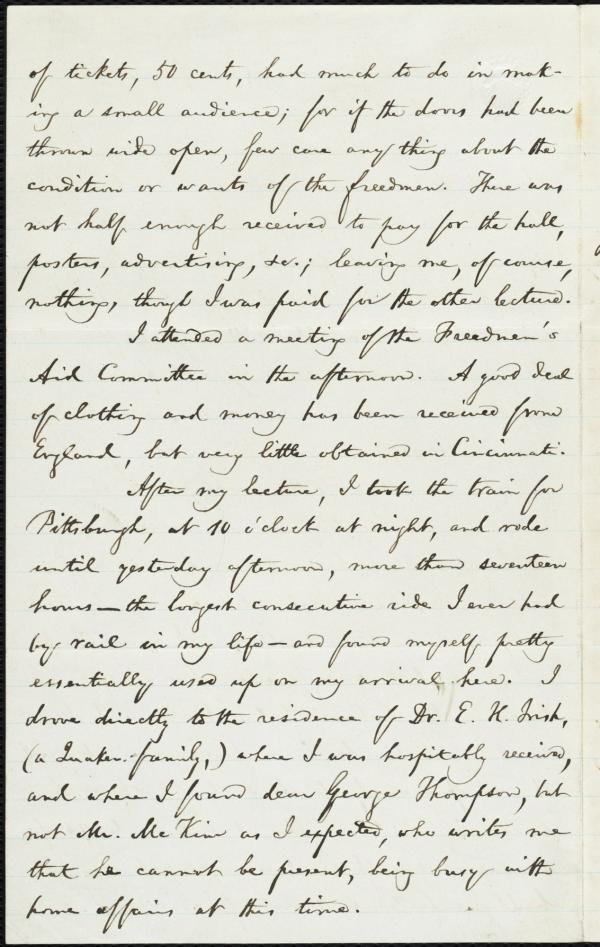 of tickets, 50 cents, had much to do in mak-
ing a small audience; for if the doors had been
thrown wide open, few care any thing about the
condition or wants of the freedmen. There was
not half enough received to pay for the hall,
posters, advertising, &c.; leaving me, of course,
nothing, though I was paid for the other lecture.
I attended a meeting of the Freedmen's
Aid Committee in the afternoon. A good deal
of clothing and money has been received from
England, but very little obtained in Cincinnati.
After my lecture, I took the train for
Pittsburgh, at 10 o'clock at night, and rode
until yesterday afternoon, more than seventeen
hours—the longest consecutive ride I ever had
by rail in my life—and found myself pretty
essentially used up on my arrival here. I
drove directly to the residence of Dr. E. H. Irish,
(a Quaker family,) where I was hospitably received,
and where I found dear George Thompson, but
not Mr. McKim as I expected, who writes me
that he cannot be present, being busy with
home affairs at this time.